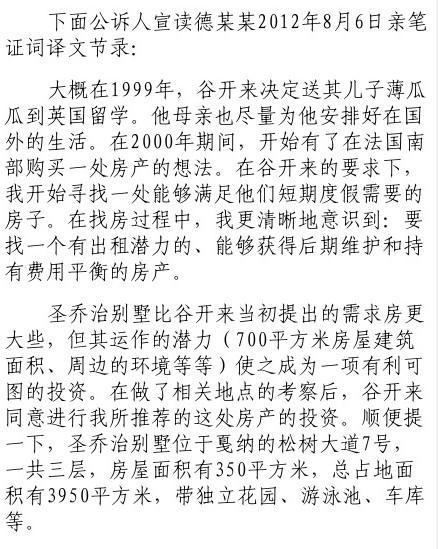 下面公诉人宣读德某某2012年8月6日亲笔
证词译文节录：
大概在1999年，谷开来决定送其儿子薄瓜
瓜到英国留学。他母亲也尽量为他安排好在国
外的生活。在2000年期间，开始有了在法国南
部购买一处房产的想法。在谷开来的要求下，
我开始寻找一处能够满足他们短期度假需要的
房子。在找房过程中，我更清晰地意识到：要
找一个有出租潜力的、能够获得后期维护和持
有费用平衡的房产。
圣乔治别墅比谷开来当初提出的需求房更
大些，但其运作的潜力（700平方米房屋建筑
面积、周边的环境等等）使之成为一项有利可
图的投资。在做了相关地点的考察后，谷开来
同意进行我所推荐的这处房产的投资。顺便提
一下，圣乔治别墅位于戛纳的松树大道7号，
一共三层，房屋面积有350平方米，总占地面
积有3950平方米，带独立花园、游泳池、车库
等。